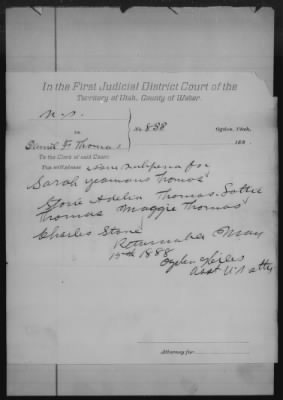 In the First Judicial District Court of the
Territory of Utah, County of Weber.
U.S.
vs.
Daniel F. Thomas
No. 888
Ogden, Utah,
188 .
To the Clerk of said Court:
You will please issue subpena for
Sarah Thomas
Stone Adelia Thomas. Lottie
Thomas Maggie Thomas
Charles Stone
Returnable May
15th 1888
Ogden Hiles
Asst U.S. atty
Attorney for